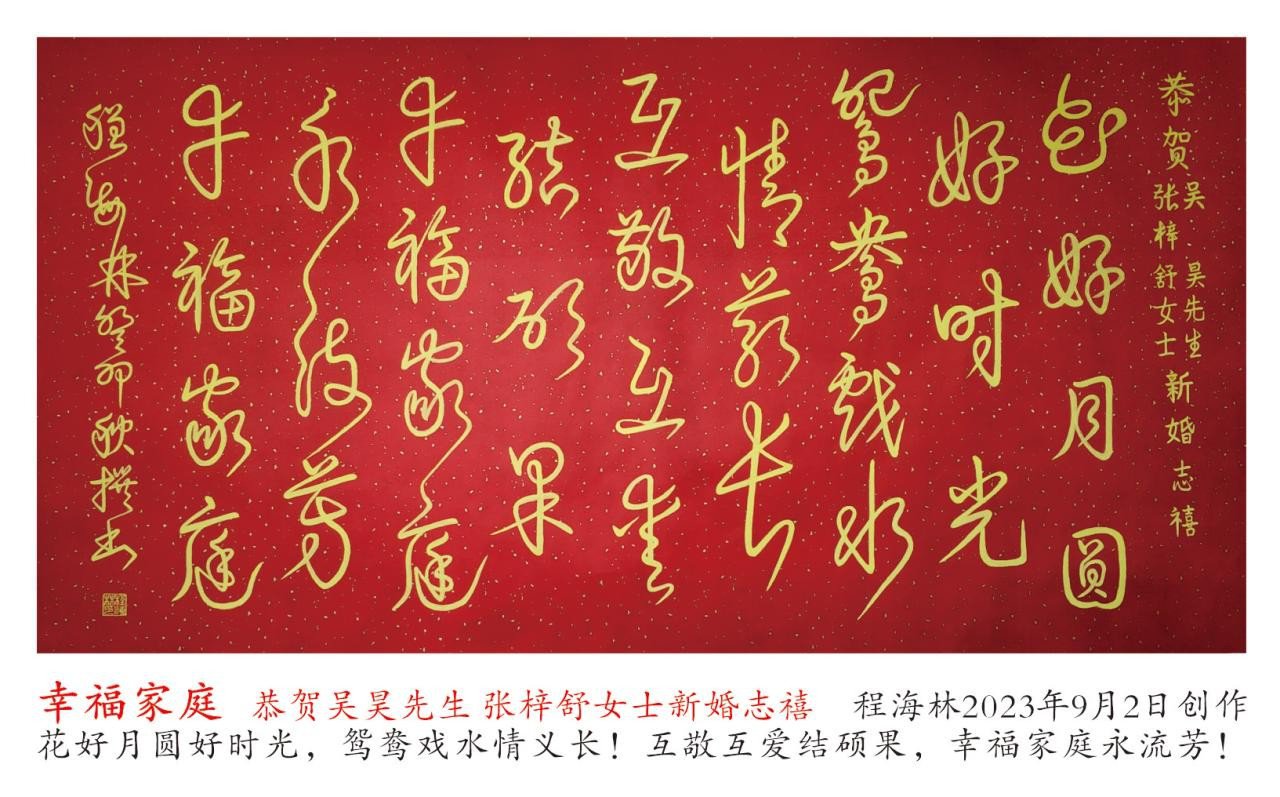 恭贺吴昊先生张梓舒女士新婚志禧
花好月圆
好时光
鸳鸯戏水
情义长
互敬互爱
结硕果
幸福家庭
永流芳
幸福家庭
程海林癸卯秋撰书
幸福家庭 恭贺吴昊先生 张梓舒女士新婚志禧 程海林2023年9月2日创作
花好月圆好时光，鸳鸯戏水情义长！互敬互爱结硕果，幸福家庭永流芳！